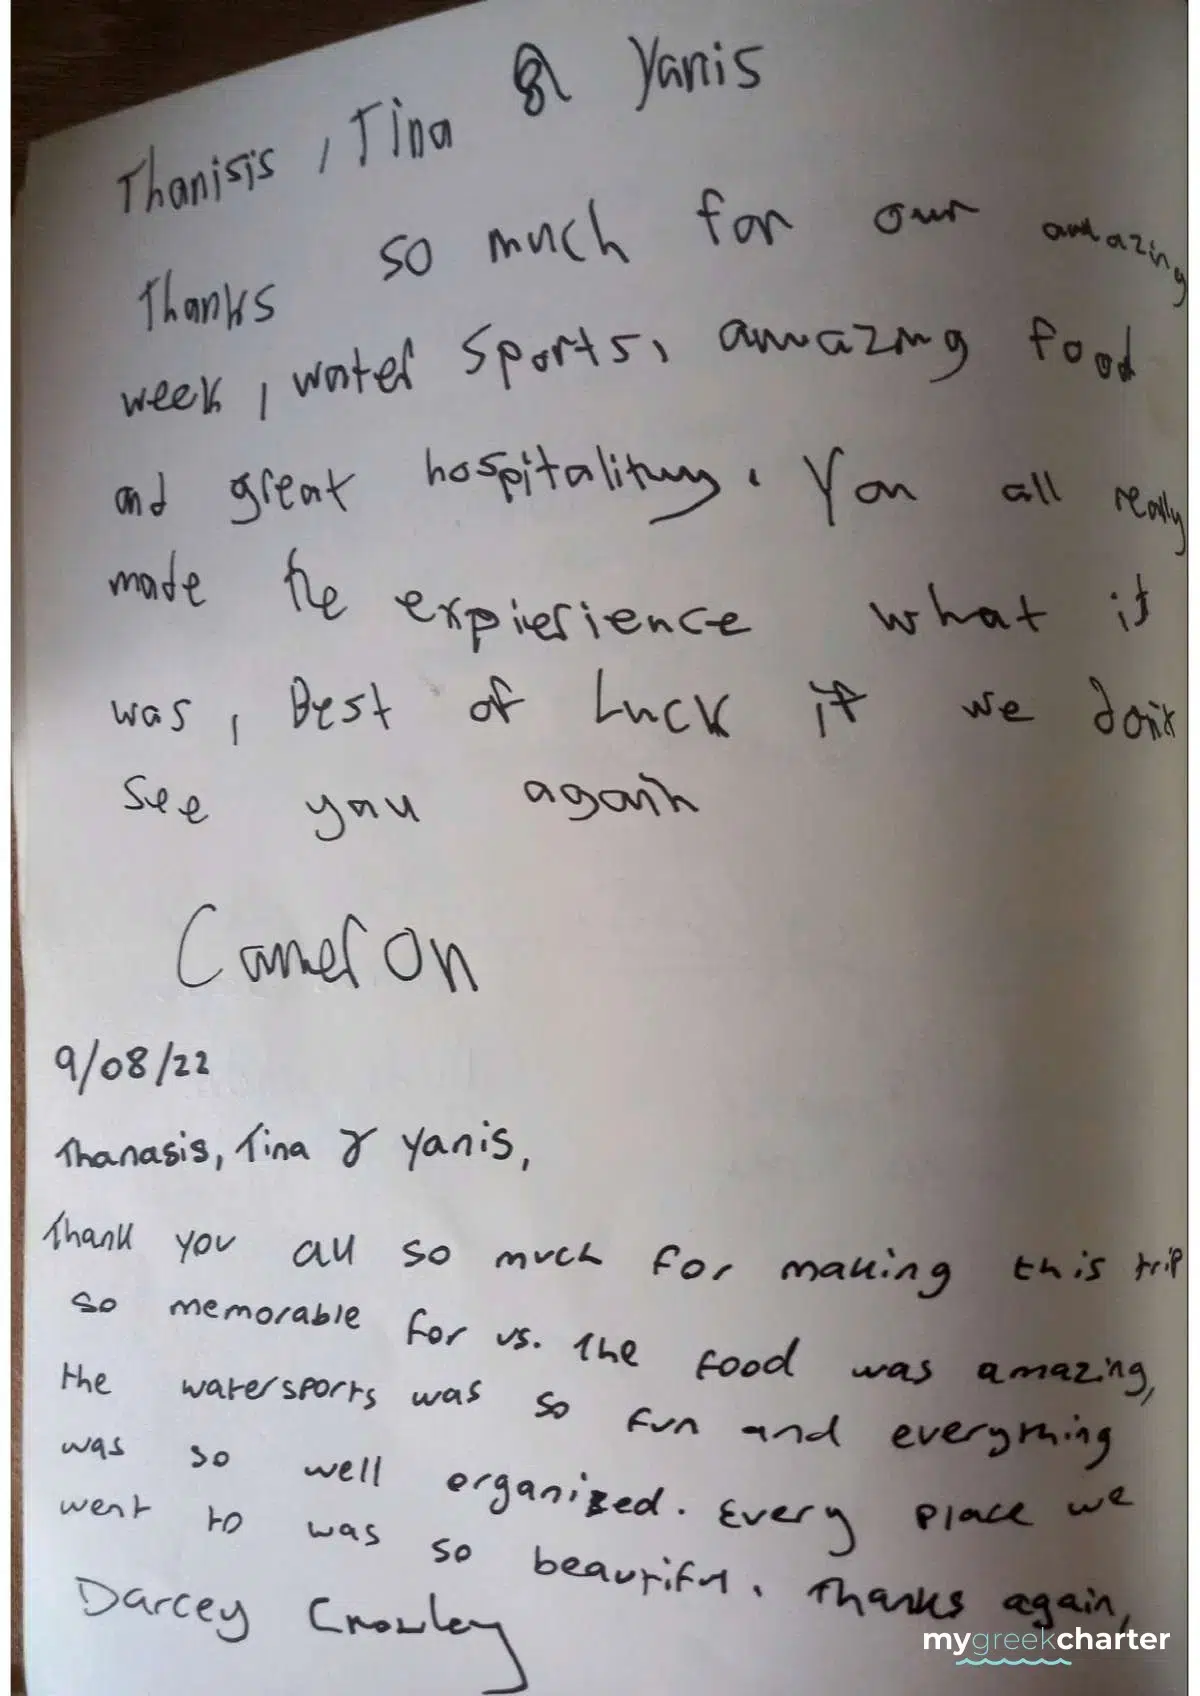 Thanisis, Tina & Yanis
Thanks so much for our amazing
week, water sports, amazing food
and great hospitality. You all really
made the expierience what it
was, Best of Luck if we don't
see you again
Cameron
9/08/22
Thanasis, Tina & Yanis,
Thank you all so much for making this trip
so memorable for us. The food was amazing,
the watersports was so fun and everything
was so well organized. Every place we
went to was so beautiful. Thanks again,
Darcey Crowley
mygreekcharter